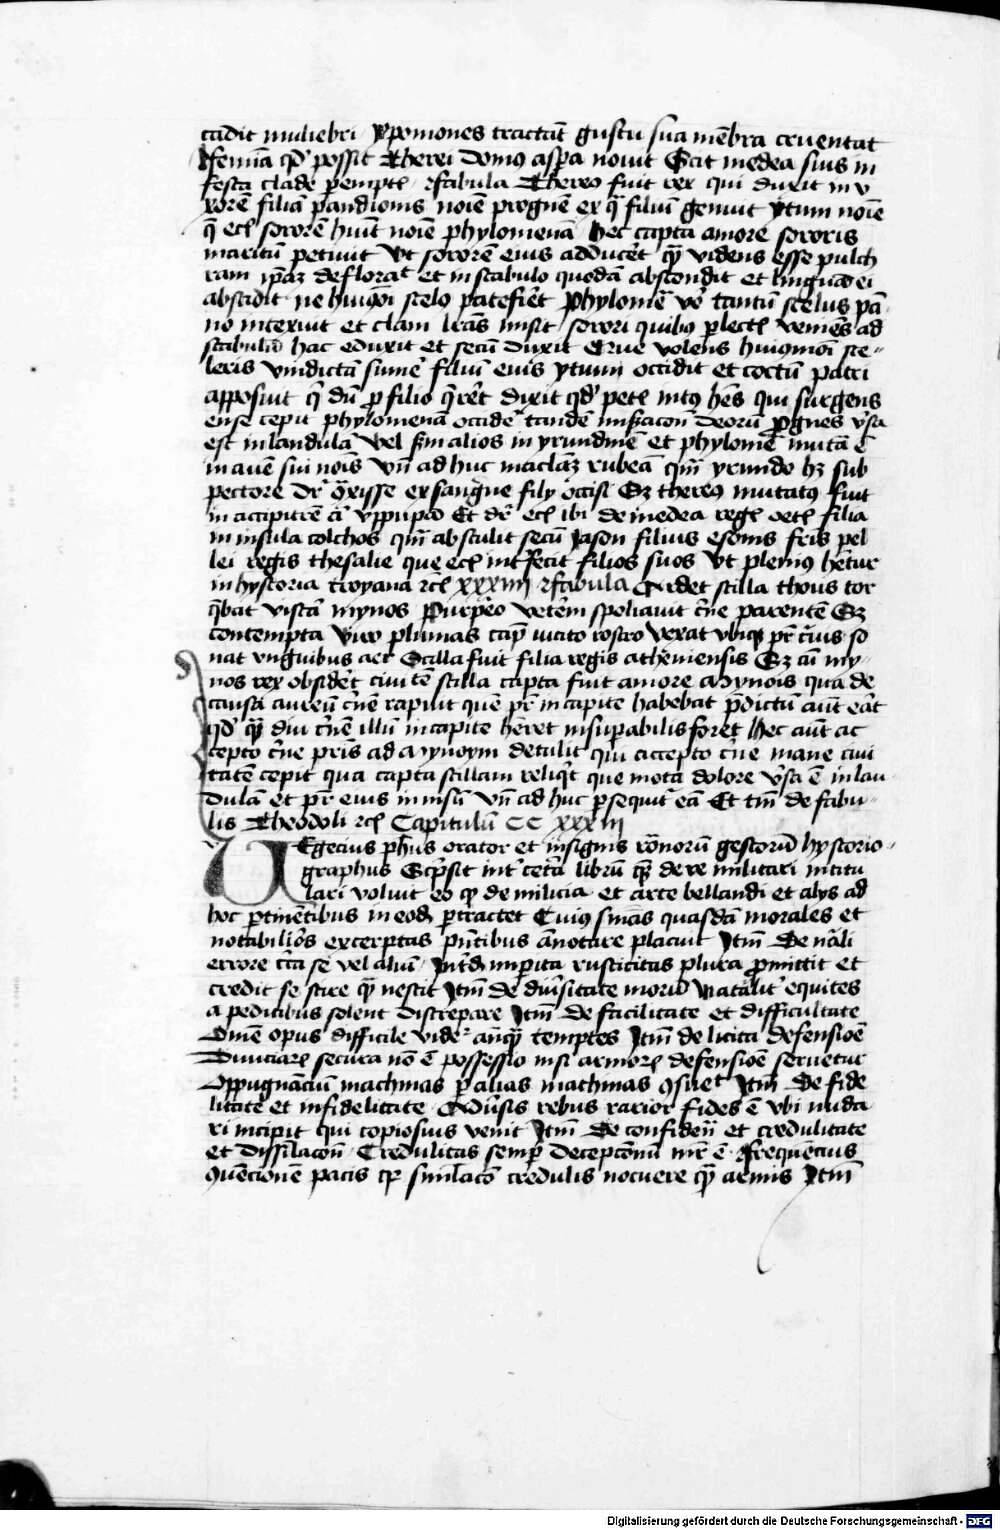 cadit muliebri yponiones tractant gustu sua mēbra cruentat
Femīa qd possit Therei domꝰ aspa novit Scit medea suis in
festa clade pempt fabula Thereꝰ fuit rex qui duxit in v
xorē filiā pandionis noīe prognē ex qua filiū genuit ytum noīe
q̄ eciā sororē hūit noīe phylomenā hec capta amore sororis
maritū petiuit vt sororē eius adduceret quā videns esse pulch
ram ipam deflorat et in stabulo quodā abscondit et linguā ei
abscidit ne huiꝰmōi scelꝰ patefieret phylomēa vero tantū scelus pā
no intexuit et clam lrās misit sorori quibꝰ plectis veniēs ad
stabulū hac eduxit et secū duxit Que volens huiꝰmōi sce
leris vindictā sumē filiū eius ytum occidit et coctū patri
apposuit qi dū p filio quereret dixit qd petis intꝰ hēs qui surgens
ense cepit phylomenā occidē tandē miseracōn deorū prognes versa
est in laudulā vel sm alios in yrundinē et phylomēa mutata ē
in auē sui nois vn̄ adhuc maculaz rubeā qm̄ yrundo hz sub
pectore dr traxisse ex sangue filij occisi Sz thereꝰ mutatꝰ fuit
in accipitrē ci vppupā Et dr eciā ibi de medea regis oetis filia
in insula colchos qm̄ abstulit secū Jason filius esonis fris pel
lei regis thesalie que eciā interfecit filios suos vt pleniꝰ habetur
in hystoria troyana rc xxxiiij fabula Ardet scilla thous tor
quebat viscera mynos Purpureo veterem spoliauit crīe parentē Sz
contempta viro plumas capit iacito rostro vexat vbiqꝫ pr cuius so
nat vnguibus aer Scilla fuit filia regis atheniensis Sz cū my
nos rex obsideret ciuitatē scilla capta fuit amore mynois qua de
causa aureū crinē rapuit quē pr in capite habebat prdictū aut erat
qd quā diu crinē illū in capite haberet insuperabilis foret Hec aut ac
cepto crīe pris ad mynoym detulit qui accepto crīe mane ciui
tatē cepit qua capta scillam reliquit que mota dolore versa ē in lau
dulā et pr eius in nisū vn̄ adhuc persequit eā Et tm̄ de fabu
lis Theodoli rc Capitulū CC xxxiij
Vegecius phus orator et insignis romanorū gestorū hystorio
graphus Scripsit int cetera librū que de re militari intitu
lari voluit eo qi de milicia et arte bellandi et alijs ad
hoc ptinentibus in eodē ptractet Cuiꝰ snias quasdā morales et
notabiliores excerptas pntibus annotare placuit Itm̄ De nāli
errore circa se vel aliū Interdū imperita rusticitas plura promittit et
credit se scire que nescit Itm̄ de diūsitate morū Naturalit equites
a peditibus solent discrepare Itm̄ De facilitate et difficultate
Omē opus difficile videt anteq̄ temptes Itm̄ de licita defensiōe
Diuiciarū secura nō ē possessio nisi armorū defensiōe seruetur
Oppugnanciū machinas p alias machinas ꝯsueuit Itm̄ De fide
litate et infidelitate Aduersis rebus rarior fides ē vbi nuda
ri incipit qui copiosius venit Itm̄ De confidencia et credulitate
et dyssimulacone Credulitas semp decepconum mr ē Frequencius
ꝯuencionē pacis et simulacō credulis nocuere quā armis Itm̄
Digitalisierung gefördert durch die Deutsche Forschungsgemeinschaft - DFG